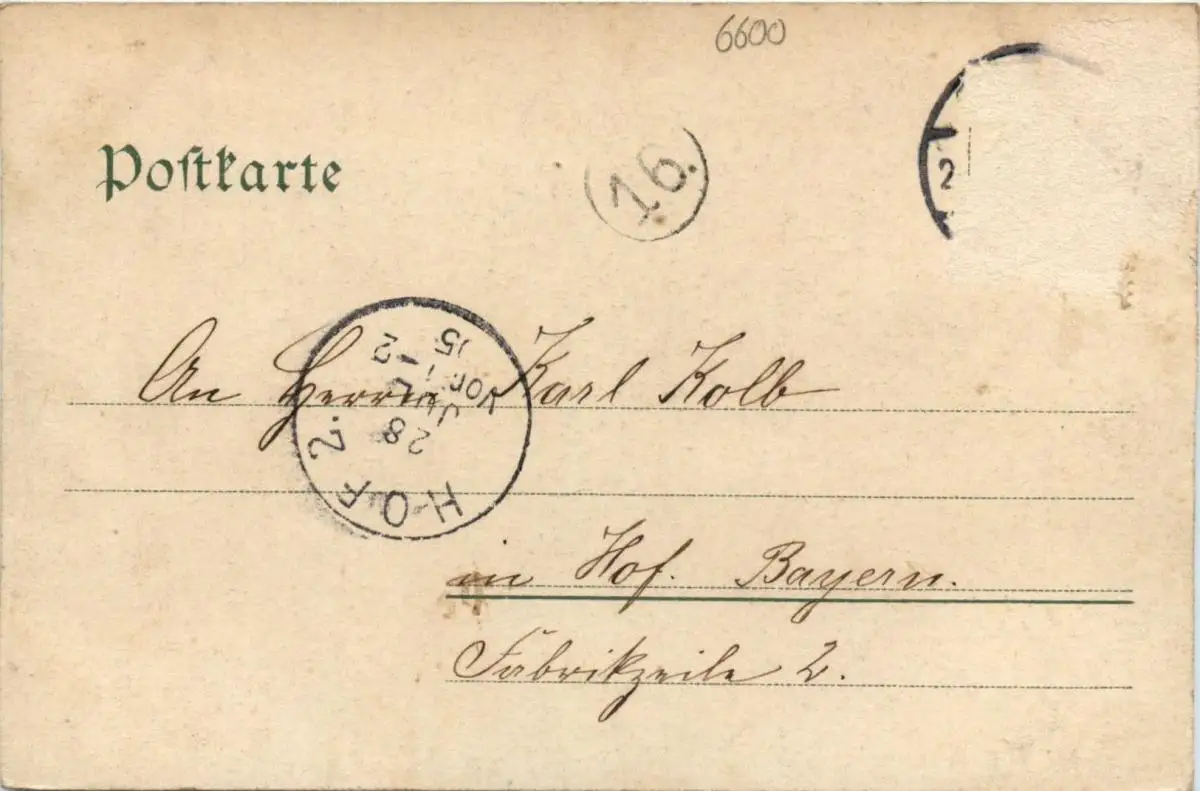 6600
Postkarte
16.
2
An Herrn Karl Kolb
HOF 2.
28
JUL
VOR. 1-2
05
in Hof. Bayern.
Fabrikzeile 2.